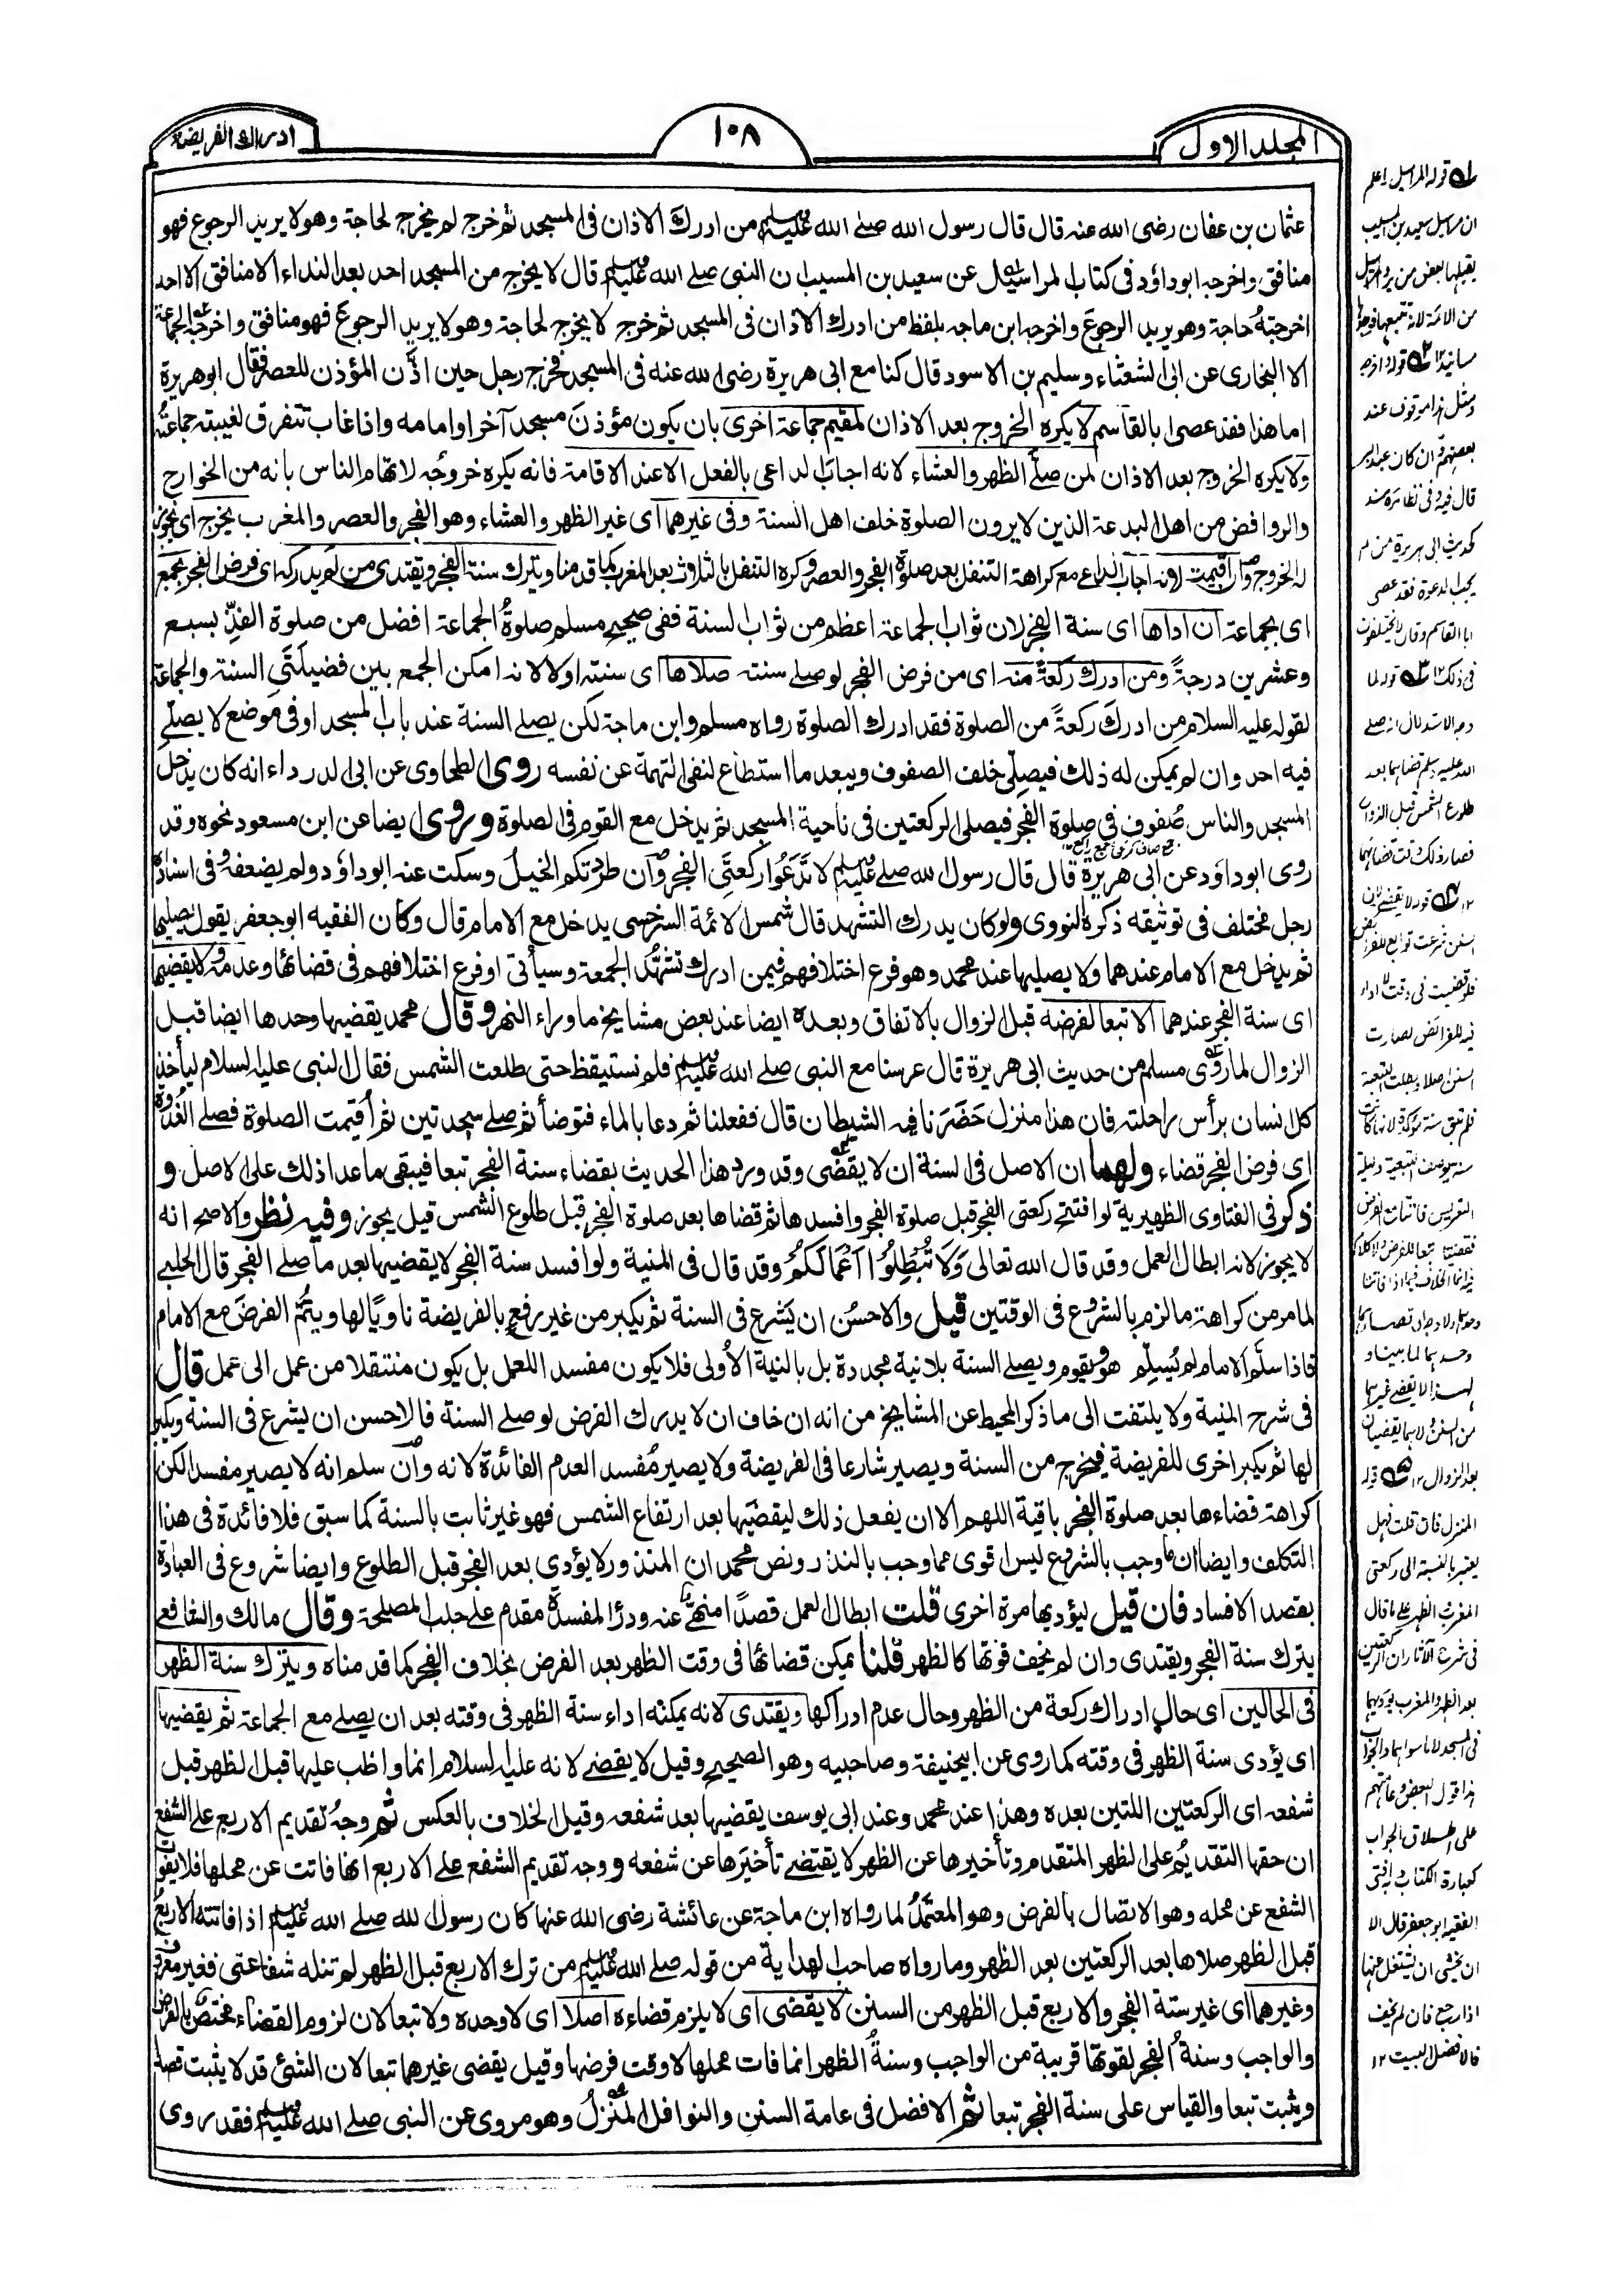 المجلد الاول
١٠٨
ادراك الفريضة
عثمان بن عفان رضی الله عنہ قال قال رسول الله صلے الله علیہ وسلم من ادرك الاذان فی المسجد ثم خرج لم یخرج لحاجة وهو لا یرید الرجوع فهو
منافق واخرجہ ابوداؤد فی کتاب المراسیل عن سعید بن المسیب ان النبی صلے الله علیہ وسلم قال لا یخرج من المسجد احد بعد النداء الا منافق الا احد
اخرجتہ حاجة وهو یرید الرجوع واخرجہ ابن ماجہ بلفظ من ادرك الاذان فی المسجد ثم خرج لا یخرج لحاجة وهو لا یرید الرجوع فهو منافق واخرجہ الجماعة
الا البخاری عن ابی الشعثاء وسلیم بن الاسود قال کنا مع ابی هریرة رضی الله عنه فی المسجد فخرج رجل حین اذن المؤذن للعصر فقال ابو هریرة
اما هذا فقد عصی ابا القاسم لا یکره الخروج بعد الاذان لمقیم جماعة اخری بان یکون مؤذن مسجد آخر او امامه واذا غاب تتفرق لغیبته جماعتہ
ولا یکره الخروج بعد الاذان لمن صلّے الظهر والعشاء لانه اجاب الداعی بالفعل الا عند الاقامة فانه یکره خروجُه لاتهام الناس بانه من الخوارج
والروافض من اهل البدعة الذین لا یرون الصلوة خلف اهل السنة وفی غیرهما ای غیر الظهر والعشاء وهو الفجر والعصر والمغرب یخرج ای یجوز
له الخروج وان اقیمت لانه اجاب الداعی مع کراهة التنفل بعد صلوة الفجر والعصر وکره التنفل بالثلاث بعد المغرب کما قدمنا ویترك سنة الفجر ویقتدی من لم یدرکه ای فرض الفجر بجمع
ای بجماعة ان اداها ای سنة الفجر لان ثواب الجماعة اعظم من ثواب السنة ففی صحیح مسلم صلوةُ الجماعة افضل من صلوة الفذّ بسبع
وعشرین درجةً ومن ادرك رکعةً منه ای من فرض الفجر لو صلے سنته صلاها ای سنته اولا لانه امکن الجمع بین فضیلتی السنة والجماعة
لقوله علیہ السلام من ادرك رکعةً من الصلوة فقد ادرك الصلوة رواه مسلم وابن ماجة لکن یصلے السنة عند باب المسجد او فی موضع لا یصلّے
فیه احد وان لم یمکن له ذلك فیصلّی خلف الصفوف ویبعد ما استطاع لنفی التهمة عن نفسه روی الطحاوی عن ابی الدرداء انه کان یدخل
المسجد والناس صُفوف فی صلوة الفجر فیصلی الرکعتین فی ناحیة المسجد ثم یدخل مع القوم فی الصلوة وروی ایضا عن ابن مسعود نحوه وقد
روی ابوداؤد عن ابی هریرة قال قال رسول الله صلے علیہ وسلم لا تَدَعُوا رکعتَی الفجر وان طردتکم الخیلُ وسکت عنه ابوداؤد ولم یضعفه وفی اسناده
رجل مختلف فی توثیقه ذکره النووی ولو کان یدرك التشهد قال شمس الائمة السرخسی یدخل مع الامام قال وکان الفقیه ابو جعفر یقول یصلیها
ثم یدخل مع الامام عندهما ولا یصلیها عند محمد وهو فرع اختلافهم فیمن ادرك تشهُّد الجمعة وسیأتی او فرع اختلافهم فی قضائها وعدمه ولا یقضیها
ای سنة الفجر عندهما الا تبعا لفرضه قبل الزوال بالاتفاق وبعده ایضا عند بعض مشایخ ما وراء النهر وقال محمد یقضیها وحدها ایضا قبل
الزوال لما روی مسلم من حدیث ابی هریرة قال عرسنا مع النبی صلے الله علیہ وسلم فلم نستیقظ حتی طلعت الشمس فقال النبی علیہ السلام لیأخذ
کل انسان برأس راحلتہ فان هذا منزل حَضَرَنا فیه الشیطان قال ففعلنا ثم دعا بالماء فتوضأ ثم صلے سجدتین ثم اُقیمت الصلوة فصلے الغُدوة
ای فرض الفجر قضاء ولهما ان الاصل فی السنة ان لا یقضٰی وقد ورد هذا الحدیث بقضاء سنة الفجر تبعا فیبقی ماعدا ذلك علی الاصل و
ذکر فی الفتاوی الظهیریة لو افتتح رکعتی الفجر قبل صلوة الفجر وافسدها ثم قضاها بعد صلوة الفجر قبل طلوع الشمس قیل یجوز وفیه نظر والاصح انه
لا یجوز لانه ابطال العمل وقد قال الله تعالی وَلَا تُبْطِلُوْا اَعْمَالَکُمْ وقد قال فی المنیة ولو افسد سنة الفجر لا یقضیها بعد ما صلے الفجر قال الحلبے
لما مر من کراهة ما لزم بالشروع فی الوقتین قیل والاحسُن ان یَشرع فی السنة ثم یکبر من غیر رفعٍ بالفریضة ناویًا لها ویتُمُّ الفرضَ مع الامام
فاذا سلّم الامام لم یُسلِّم هو ویقوم ویصلے السنة بلا نیة مجددة بل بالنیة الاُولی فلا یکون مفسد اللعمل بل یکون منتقلا من عمل الی عمل قال
فی شرح المنیة ولا یلتفت الی ما ذکر المحیط عن المشایخ من انه ان خاف ان لا یدرك الفرض لو صلے السنة فالاحسن ان یشرع فی السنة ویکبر
لها ثم یکبر اخری للفریضة فیخرج من السنة ویصیر شارعا فی الفریضة ولا یصیر مُفسد العدم الفائدة لانه وان سلم انه لا یصیر مفسدا لکن
کراهة قضاءها بعد صلوة الفجر باقیة اللهم الا ان یفعل ذلك لیقضیها بعد ارتفاع الشمس فهو غیر ثابت بالسنة کما سبق فلا فائدة فی هذا
التکلف وایضا ان ما وجب بالشروع لیس اقوی مما وجب بالنذر ونص محمد ان المنذور لا یؤدی بعد الفجر قبل الطلوع وایضا شروع فی العبادة
بقصد الافساد فان قیل لیؤدیها مرة اخری قلت ابطال العمل قصدًا منهیٌّ عنه ودرُأ المفسدة مقدم علے جلب المصلحة وقال مالك والشافعی
یترك سنة الفجر ویقتدی وان لم یخف فوتها کالظهر قلنا یمکن قضائها فی وقت الظهر بعد الفرض بخلاف الفجر کما قدمناه ویترك سنة الظهر
فی الحالین ای حال ادراك رکعة من الظهر وحال عدم ادراکها ویقتدی لانه یمکنه اداء سنة الظهر فی وقته بعد ان یصلے مع الجماعة ثم یقضیها
ای یؤدی سنة الظهر فی وقته کما روی عن ابیحنیفة وصاحبیه وهو الصحیح وقیل لا یقضے لانه علیہ السلام انما واظب علیها قبل الظهر قبل
شفعہ ای الرکعتین اللتین بعده وهذا عند محمد وعند ابی یوسف یقضیها بعد شفعہ وقیل الخلاف بالعکس ثم وجهُ تقدیم الاربع علی الشفع
ان حقها التقدیُم علی الظهر المتقدم وتأخیرها عن الظهر لا یقتضے تأخیرَها عن شفعه ووجه تقدیم الشفع علے الاربع انها فاتت عن محلها فلا یفوت
الشفع عن محله وهو الاتصال بالفرض وهو المعتمدُ لما رواه ابن ماجة عن عائشة رضی الله عنها کان رسول الله صلے الله علیہ وسلم اذا فاتته الاربع
قبل الظهر صلاها بعد الرکعتین بعد الظهر وما رواه صاحب الهدایة من قولہ صلے الله علیہ وسلم من ترك الاربع قبل الظهر لم تنله شفاعتی فغیر معروف
وغیرهما ای غیر سنة الفجر والاربع قبل الظهر من السنن لا یقضی ای لا یلزم قضاءه اصلا ای لا وحده ولا تبعا لان لزوم القضاء مختص بالفرض
والواجب وسنةُ الفجر لقوتها قریبة من الواجب وسنةُ الظهر انما فات محلها لا وقت فرضها وقیل یقضی غیرهما تبعا لان الشئ قد لا یثبت قصدا
ویثبت تبعا والقیاس علی سنة الفجر تبعا ثم الافضل فی عامة السنن والنوافل المنزلُ وهو مروی عن النبی صلے الله علیہ وسلم فقد روی
قوله المراسیل اعلم
ان مراسیل سعید بن المسیب
یقبلها بعض من یرد المراسیل
ومثل هذا موقوف عند
بعضهم وان کان عبد البر
کحدیث ابی هریرة من لم
یجب الدعوة فقد عصی
ابا القاسم وقال لا یختلفون
فی ذلك ١٢ قوله لما
وجه الاستدلال انه صلے
الله علیہ وسلم قضاهما بعد
طلوع الشمس قبل الزوال
فصار ذلك وقت قضائهما
١٢ قوله لا یقضے لان
السنن شرعت توابع للفرائض
من السنن لانهما یقضیان
بعد الزوال ١٢ قوله
المنزل فان قلت هل
یعتبر بالنسبة الی رکعتی
المغرب والظهر علے ما قال
فی شرح الآثار ان الرکعتین
بعد الظهر والمغرب یؤدیهما
فی المسجد لا ما سواهما والجواب
هذا قول البعض وعامتهم
علی اطلاق الجواب
کعبارة الکتاب وبه افتی
الفقیه ابو جعفر قال الا
ان یخشی ان یشتغل عنها
اذا رجع فان لم یخف
فالافضل البیت ١٢